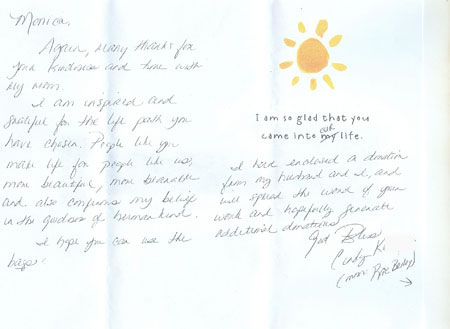 Monica,
Again, many thanks for
your kindness and time with
my mom.
I am inspired and
grateful for the life path you
have chosen. People like you
make life for people like us,
more beautiful, more bearable
and also confirms my belief
in the goodness of human kind.
I hope you can use the
bags.
I am so glad that you
came into our my life.
I have enclosed a donation
from my husband and I, and
will spread the word of your
work and hopefully generate
additional donations
God Bless
Cindy K
(mom: